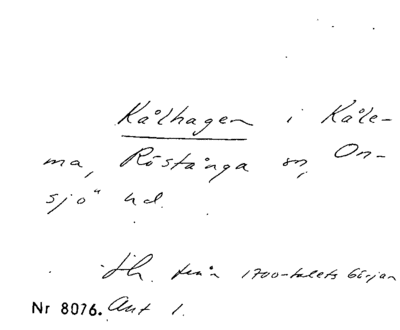 Kålhagen i Kåle-
ma, Röstånga sn, On-
sjö hd.
Jh. från 1700-talets början
Nr 8076. Ant 1.